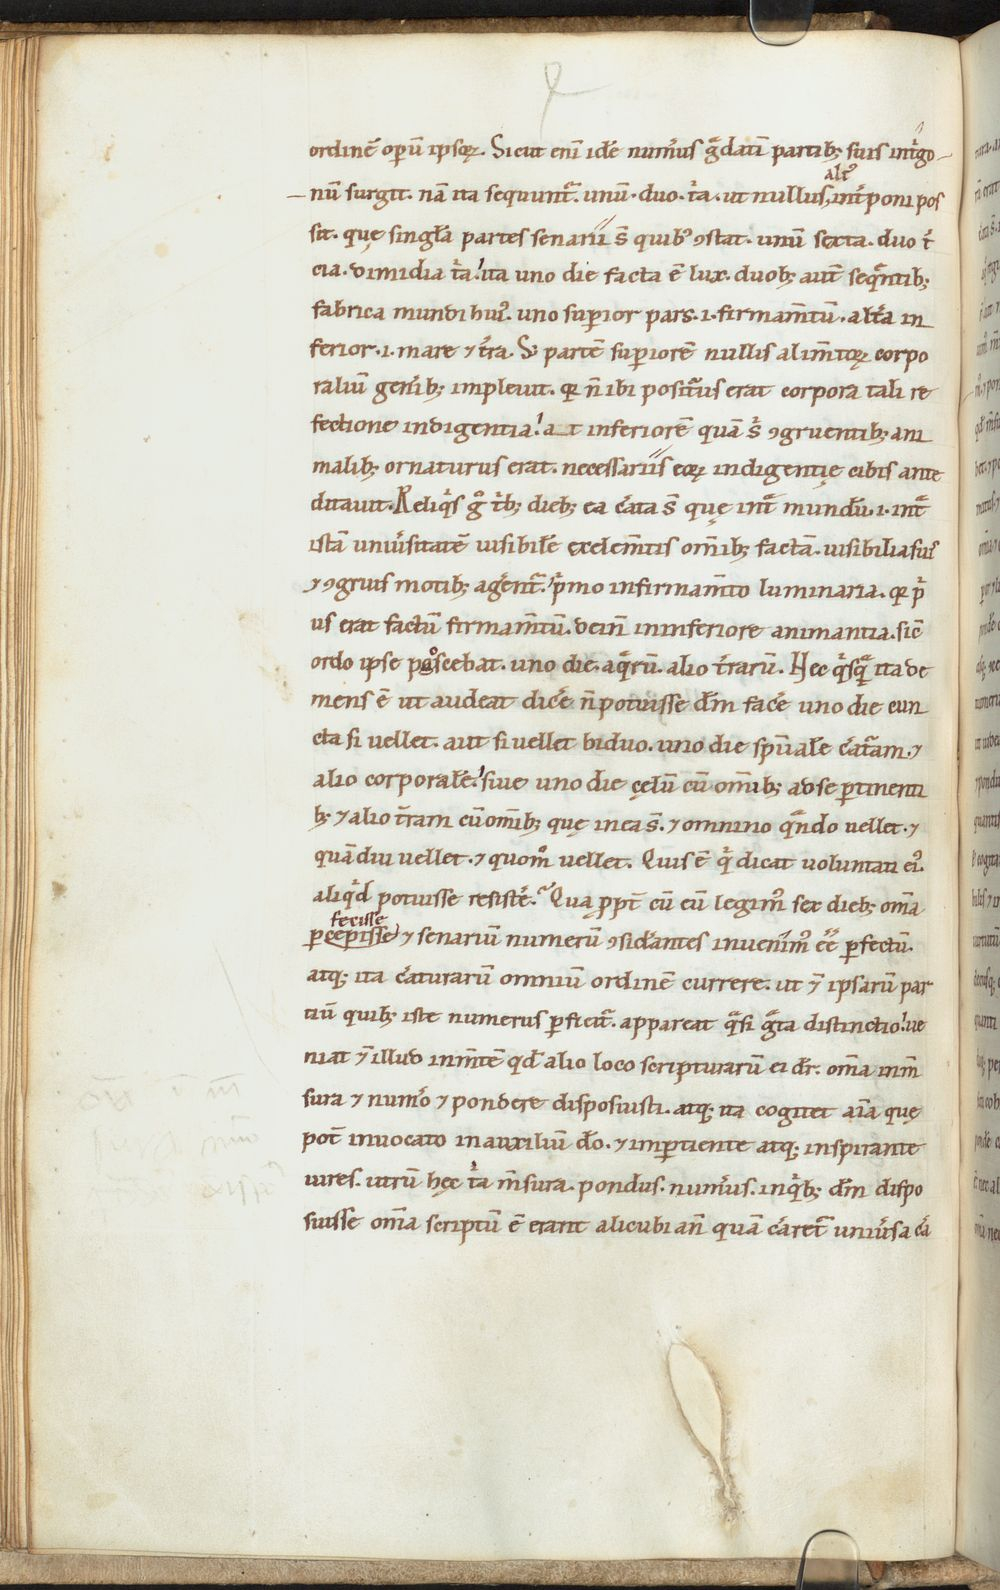 ordinē oꝑū ipsoꝝ. Sicut eni idē numerꝰ g̃datī partibꝫ suis int̃go
nū surgit. nā ita sequunt᷑. unū. duo. t̃a. ut nullus alt᷑ int̃poni pos
sit. que singlā partes senarii s̃ quibꝰ ꝯstat. unū sexta. duo t̃
cia. dimidia t̃a. ita uno die facta ē lux. duobꝫ aut̄ seq̃ntibꝫ
fabrica mundi huiꝰ. uno suꝑior pars. i. firmam̄tū. alt̃a in
ferior. i. mare ⁊ t̃ra. S; partē suꝑiorē nullis alim̄toꝝ corpo
raliū gen̄ibꝫ impleuit. qr n̄ ibi posit᷑us erat corpora tali re
fectione indigentia. at inferiorē quā s̃ ꝯgruentibꝫ ani
malibꝫ ornaturus erat. necessariis eoꝝ indigentię cibis ante
ditauit. Reliq̇s g̊ t̃bꝫ diebꝫ ea c̃ata s̃ quę int̃ mundū. i. int̃
istā uniũsitatē uisibilē ex elem̄tis om̄ibꝫ factā. uisibilia suis
⁊ ꝯgruis motibꝫ agent᷑. p̃mo in firmam̄to luminaria. qr p̃
us erat factū firmam̄tū. dein̄ in inferiore animantia. sic̄
ordo ipse poscebat. uno die. aq̃rū. alio t̃rarū. Nec q̇sq̃ ita de
mens ē ut audeat dic̃e n̄ potuisse dm̄ fac̃e uno die cun
cta si uellet. aut si uellet biduo. uno die sp̄ualē c̃at᷑am. ⁊
alio corporalē. siue uno die cęlū cū om̄ibꝫ ad se ꝑtinenti
bꝫ ⁊ alio t̃ram cū om̄ibꝫ quę in ea s̃. ⁊ omnino q̃ndo uellet. ⁊
quādiu uellet. ⁊ quom̊ uellet. Quis ē q̇ dicat uoluntati eiꝰ
aliq̇d potuisse resist̃e. Qua ꝓpt̄ cū eū legimꝰ sex diebꝫ om̄a
ꝑcepisse fecisse ⁊ senariū numerū ꝯsid̃antes inuenimꝰ ēē ꝑfectū.
atqꝫ ita c̃aturarū omniū ordinē currere. ut ⁊̄ ipsarū par
tiū quibꝫ iste numerus ꝑficit᷑. appareat q̃si g̃ta distinctio. ue
niat ⁊̄ illud in m̄tē qd̄ alio loco scripturarū ei dr̄. om̄a in m̄
sura ⁊ num̃o ⁊ pondere disposuisti. atqꝫ ita cogitet aīa quę
pot̄ inuocato in auxiliū do. ⁊ imꝑtiente atqꝫ inspirante
uires. utrū hęc t̃a m̄sura. pondus. numerꝰ. in q̇bꝫ dm̄ dispo
suisse om̄a scriptū ē erant alicubi an̄ quā c̃aret᷑ uniũsa c̃a